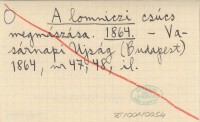 A lomniczi csúcs
megmászása. 1864. – Va-
sárnapi Ujság (Budapest)
1864, nr 47, 48, il.